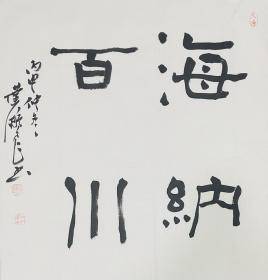 海納
百川
丙申仲冬